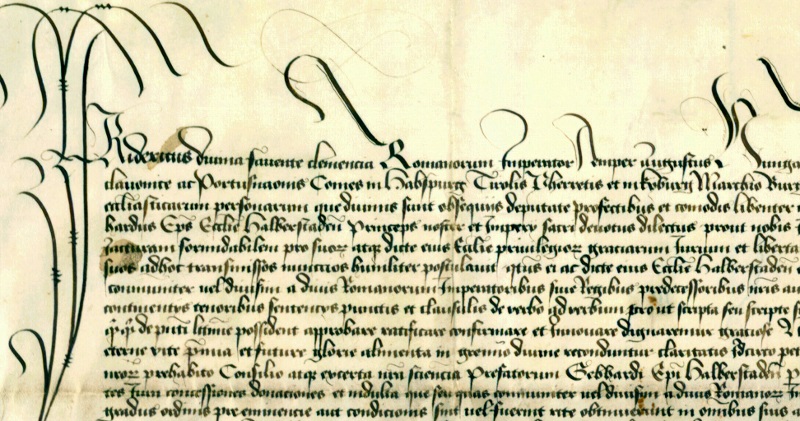 Fridericus divina favente clemencia Romanorum Imperator Semper Augustus Hunga
clavonie ac Portusnaonis Comes in Habspurg Tirolis Pherretis et in Kyburg Marchio Burg
ecclesiasticarum personarum que divinis sunt obsequijs deputate profectibus et comodis libenter
hardus Eps Ecclie Halberstaden Princeps noster et Imperij sacri devotus dilectus prout nobis
Jacturam formidabilem pro suorum atque dicte eius Ecclie privilegiorum graciarum Jurium et liberta
suos adhoc transmissos nuncios humiliter postulavit qtus ei ac dicte eius Ecclie Halberstaden
communiter vel divisim a divis Romanorum Imperatoribus sive Regibus predecessoribus nris
continentes tenoribus sentencijs punctis et clausulis de verbo ad verbum prout scripta seu scripte
de pnti possident approbare ratificare confirmare et Innovare dignaremur graciose
eterne vite pmia et future glorie alimenta in gremio divine reconduntur claritatis Idcirco
prehabito Consilio atque excerta nra sciencia Prefatorum Gebhardi Epi Halberstaden
concessiones donaciones et indulta que seu quas communiter vel divisim a divis Romanorum
gradus ordinis preeminencie aut condicionis sint vel fuerint rite obtinuerunt in omnibus suis